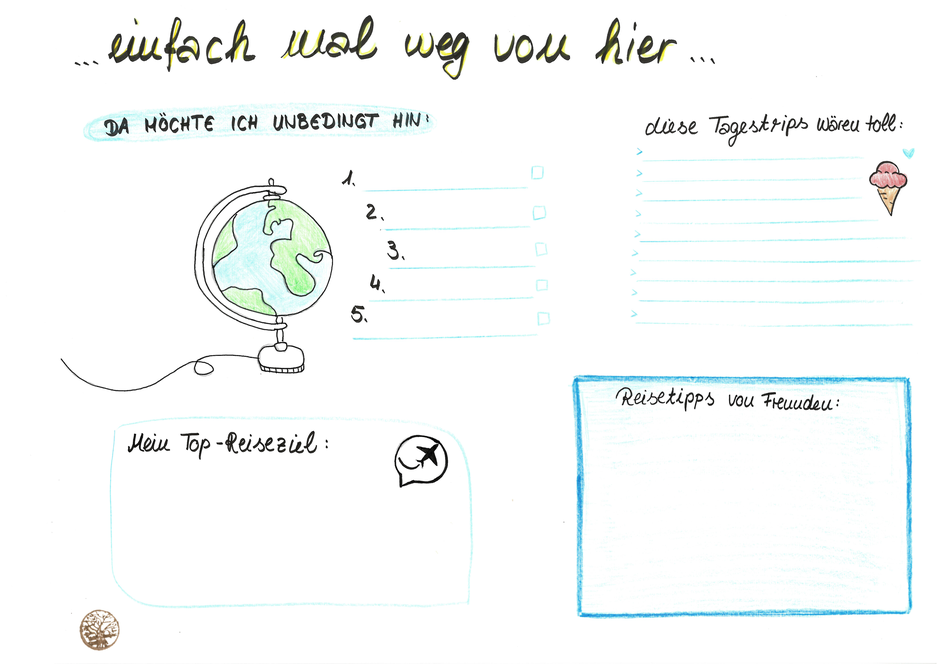 ...einfach mal weg von hier...
DA MÖCHTE ICH UNBEDINGT HIN:
1.
2.
3.
4.
5.
diese Tagestrips wären toll:
>
>
>
>
>
>
>
>
>
Mein Top-Reiseziel:
Reisetipps von Freunden: